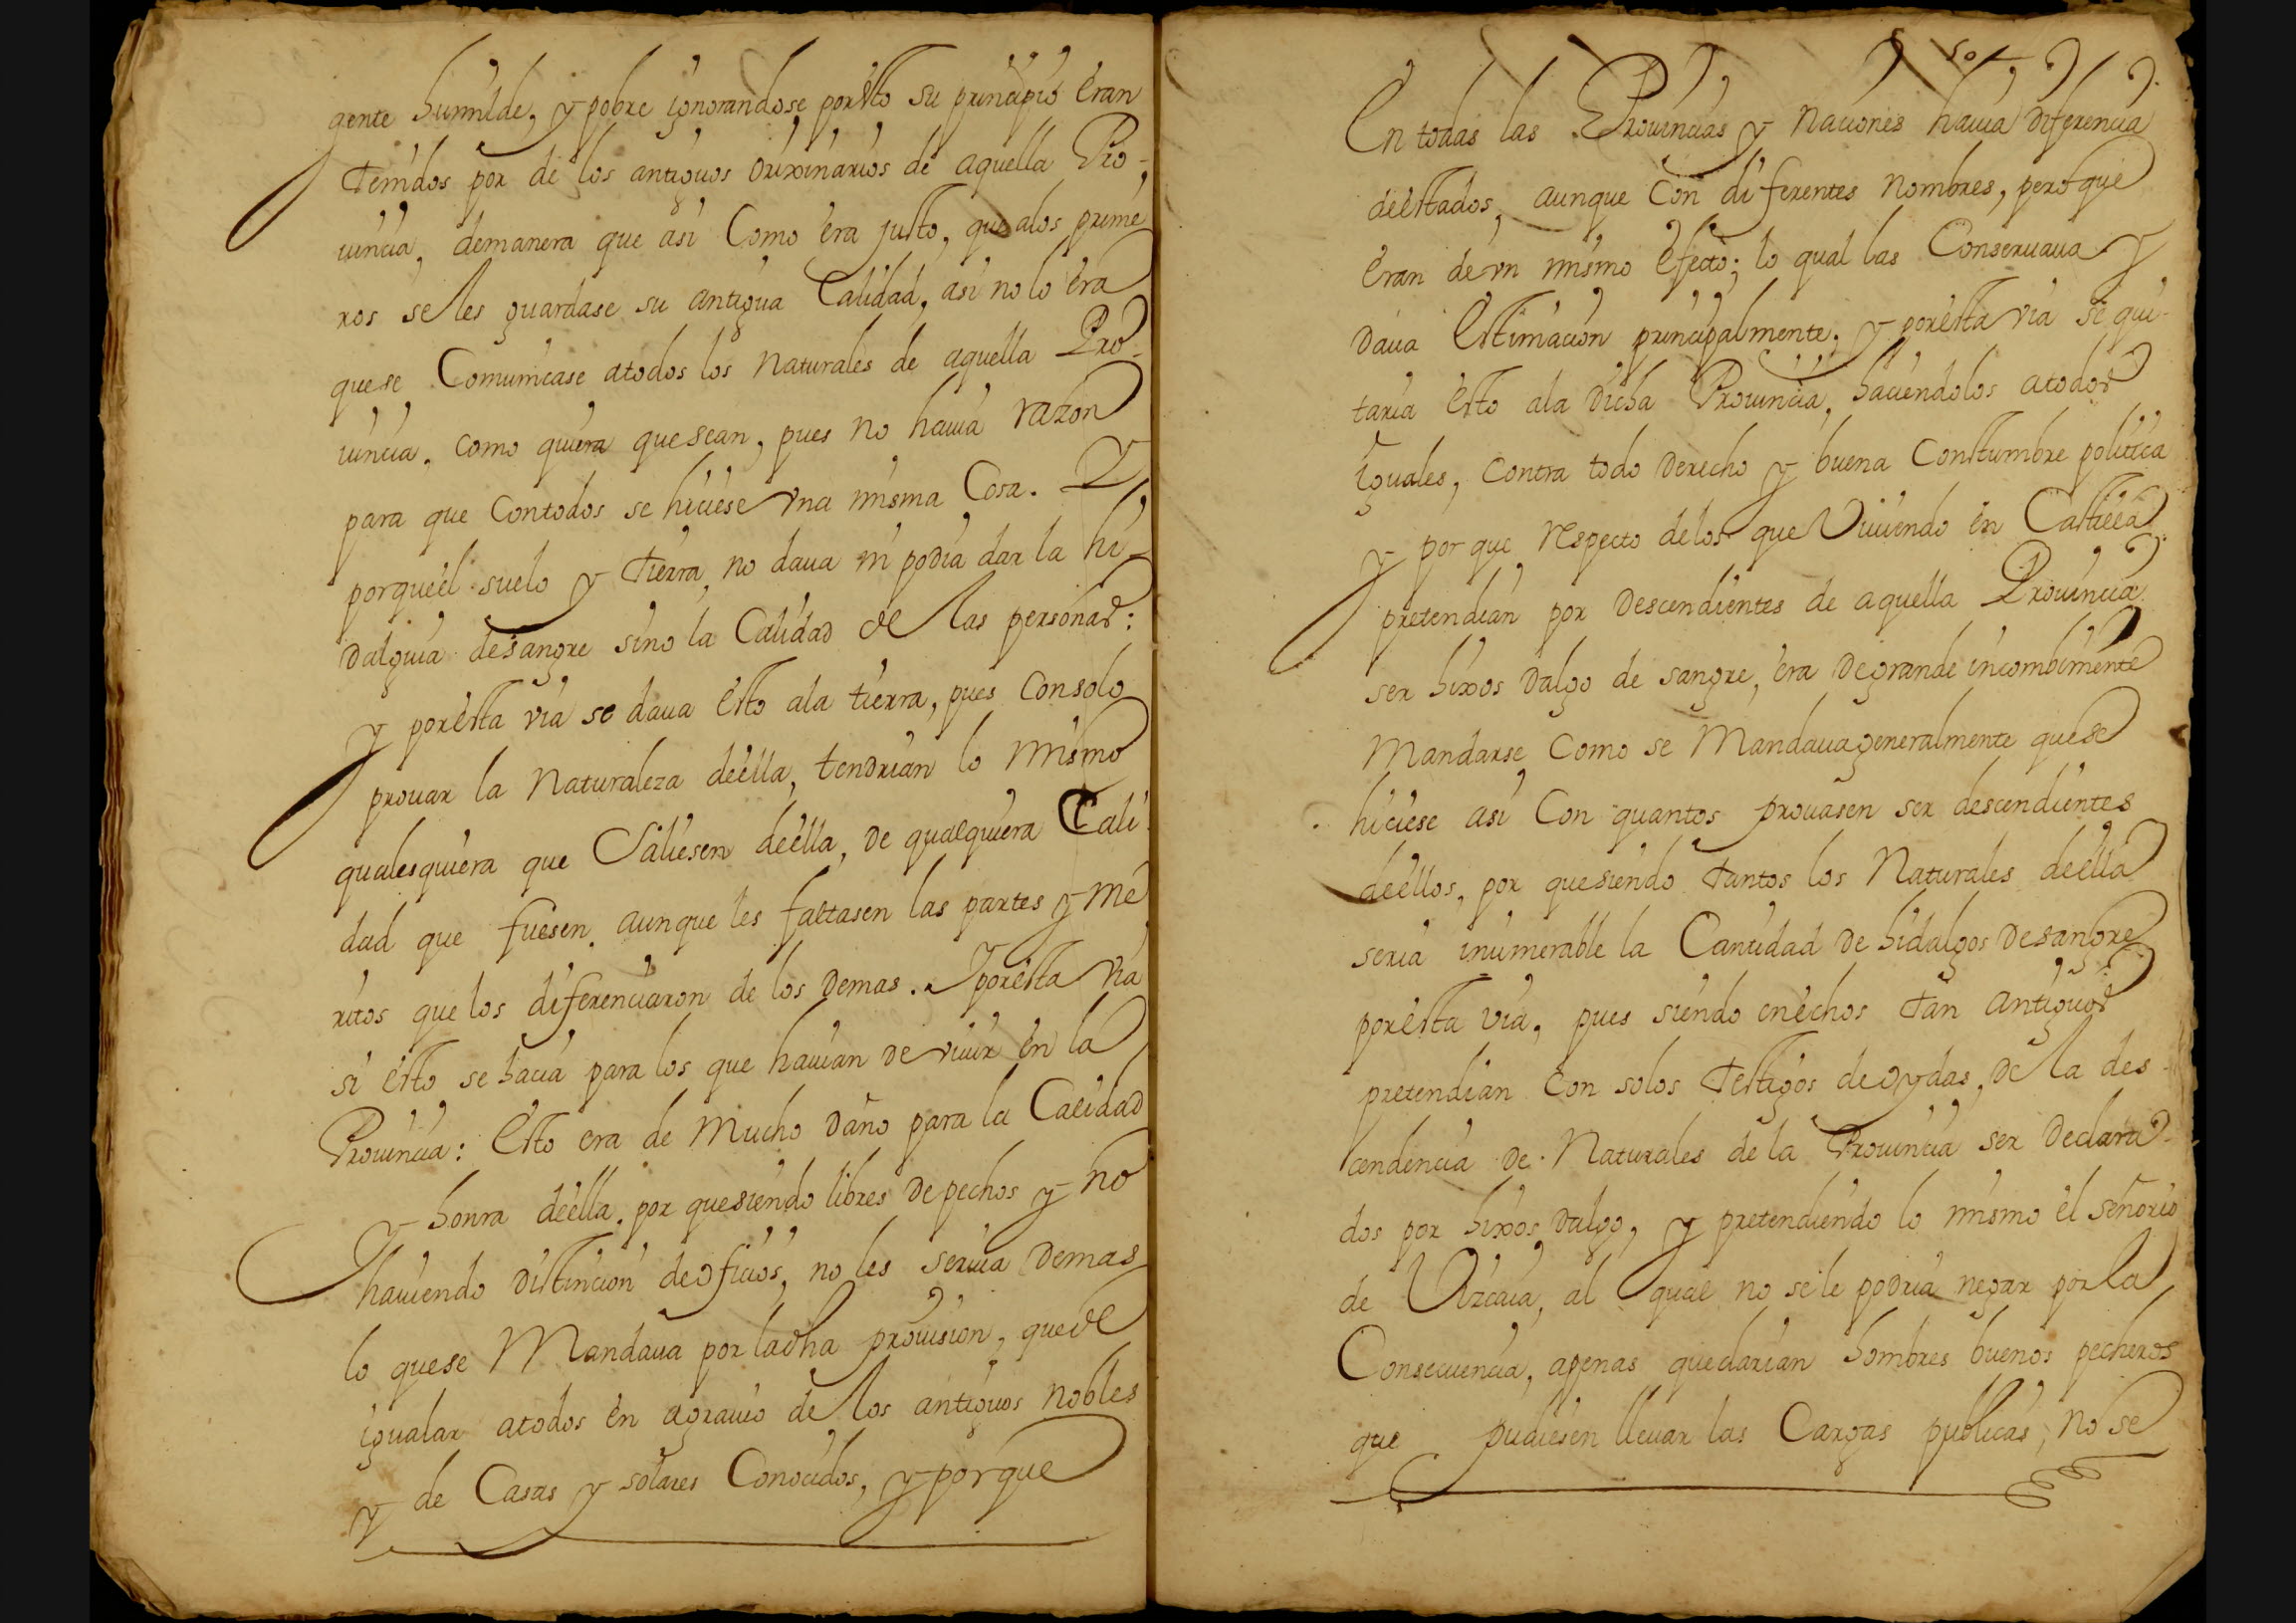 gente humilde, y pobre ignorandose por esto su principio eran
tenidos por de los antiguos orixinarios de aquella Pro-
uincia, demanera que asi Como era justo, que alos prime
ros se les guardase su antigua Calidad, asi no lo era
que se Comunicase atodos los Naturales de aquella Pro-
uincia, como quiera que sean, pues no hauia razon
para que Contodos se hiciese vna misma Cosa. Y
porque el suelo y tierra, no daua ni podia dar la hi-
dalguia de sangre sino la Calidad de las personas:
y por esta via se daua esto ala tierra, pues Con solo
prouar la Naturaleza de ella, tendrian lo mismo
qualesquiera que Saliesen de ella, de qualquiera Cali
dad que fuesen, aunque les faltasen las partes y me
ritos que los diferenciaron de los demas. Y por esta via
si esto se hacia para los que hauian de viuir en la
Prouincia: esto era de Mucho daño para la Calidad
y honra de ella, por que siendo libres de pechos y no
hauiendo distincion de oficios, no les seruia demas
lo que se Mandaua por la dha prouision, que de
igualar atodos en agrauio de los antiguos nobles
y de Casas y solares Conocidos, y porque
501
En todas las Prouincias y Naciones hauia diferencia
de estados, aunque Con diferentes nombres, pero que
eran de vn mismo efecto; lo qual las Conseruaua y
daua estimacion principalmente, y por esta via se qui-
taria esto ala dicha Prouincia, haciendolos atodos
iguales, contra todo derecho y buena Constumbre politica
y por que respecto de los que Viuiendo en Castilla
pretendian por descendientes de aquella Prouincia
ser hixos dalgo de sangre, era de grande incombiniente
Mandarse Como se Mandaua generalmente que se
hiciese asi Con quantos prouasen ser descendientes
de ellos, por que siendo tantos los Naturales de ella
seria inumerable la Cantidad de hidalgos de sangre
por esta via, pues siendo en echos tan antiguos
pretendian Con solos testigos de oydas, de la des-
cendencia de Naturales de la Prouincia ser declara-
dos por hixos dalgo, y pretendiendo lo mismo el señorio
de Vizcaia, al qual no se le podria negar por la
Consecuencia, apenas quedarian hombres buenos pecheros
que pudiesen lleuar las Cargas publicas, no se